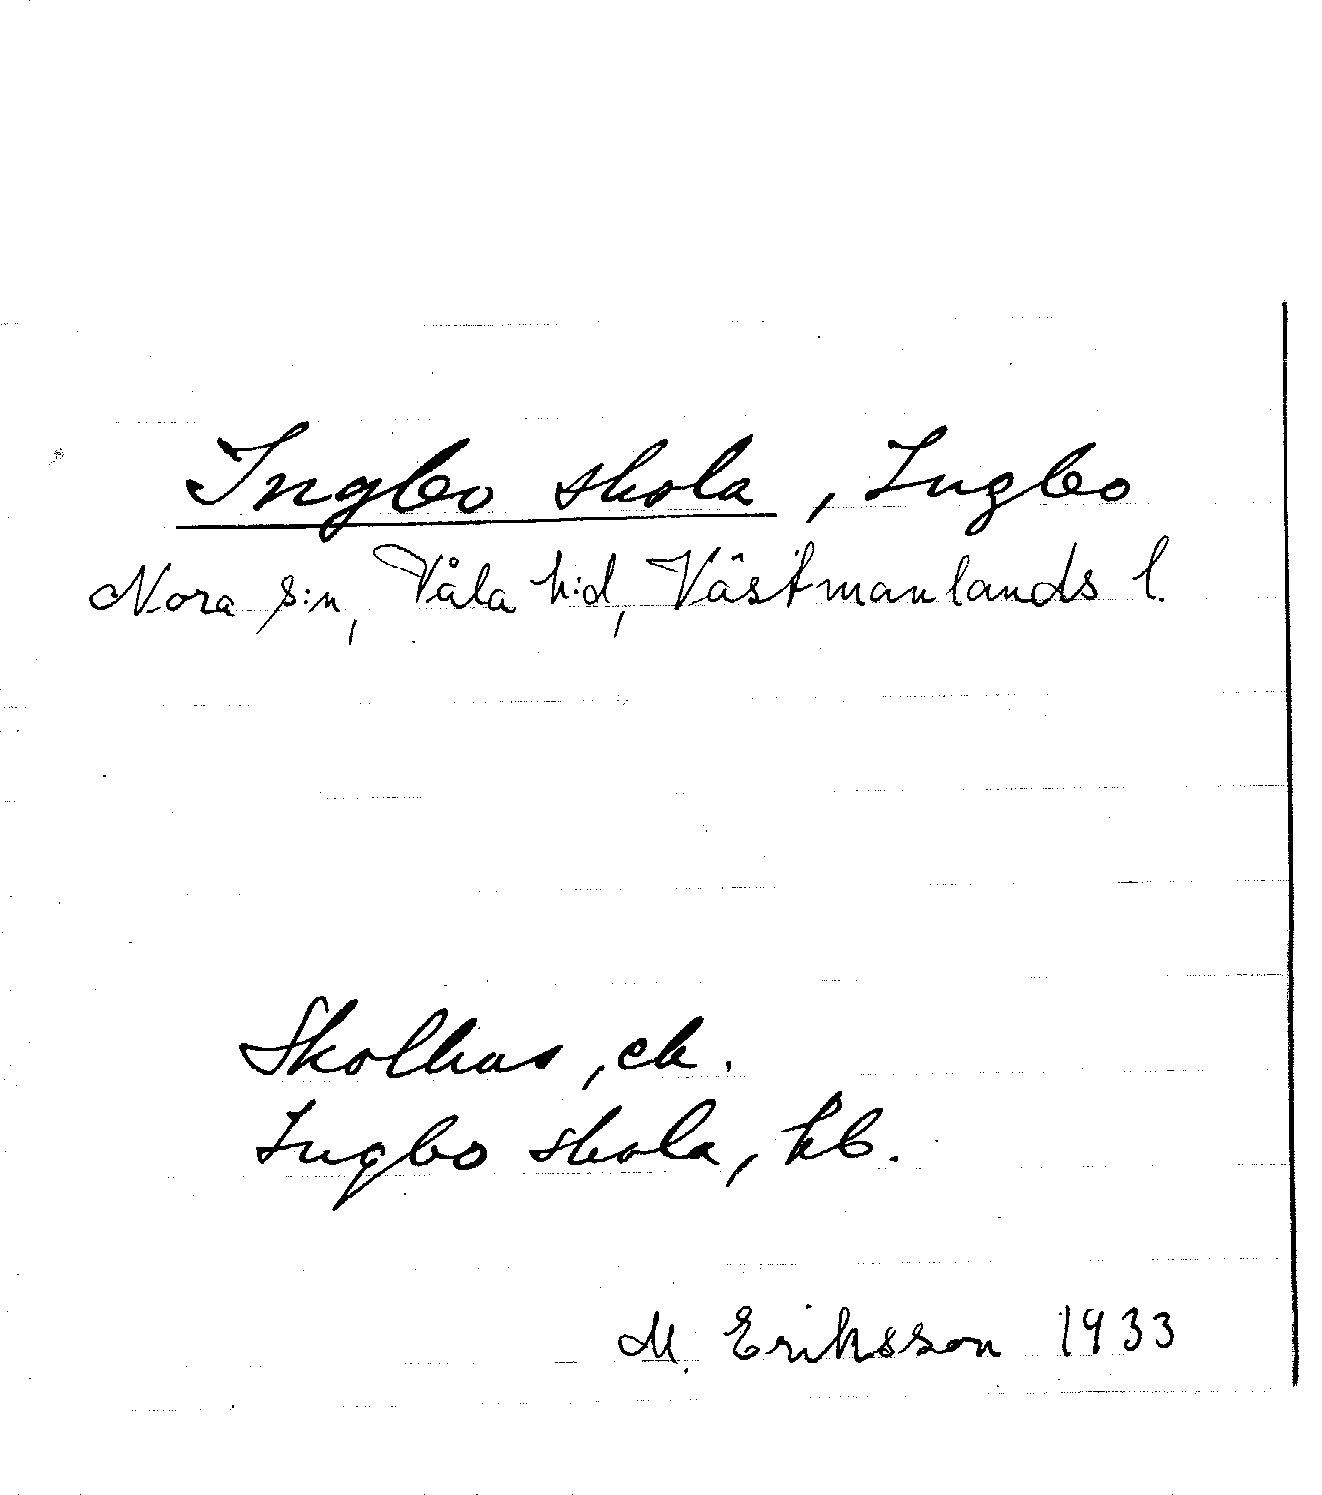 Ingbo skola, Ingbo
Nora s:n, Våla h:d, Västmanlands l.
Skolhus, ek.
Ingbo skola, kb.
M. Eriksson 1933